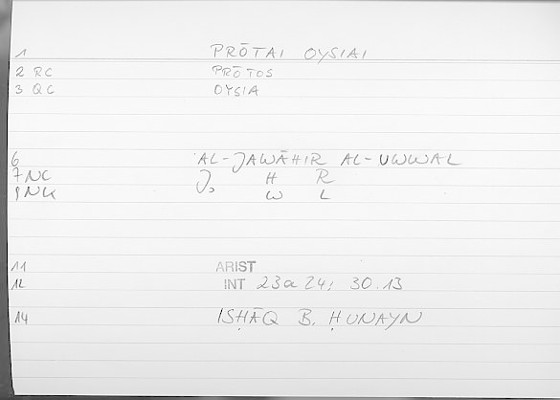 1 PRŌTAI OYSIAI
2 RC PRŌTOS
3 QC OYSIA
6 AL-JAWĀHIR AL-UWWAL
7 NC J. H R
9 NK W L
11 ARIST
12 INT 23a 24; 30.13
14 ISḤĀQ B. ḤUNAYN